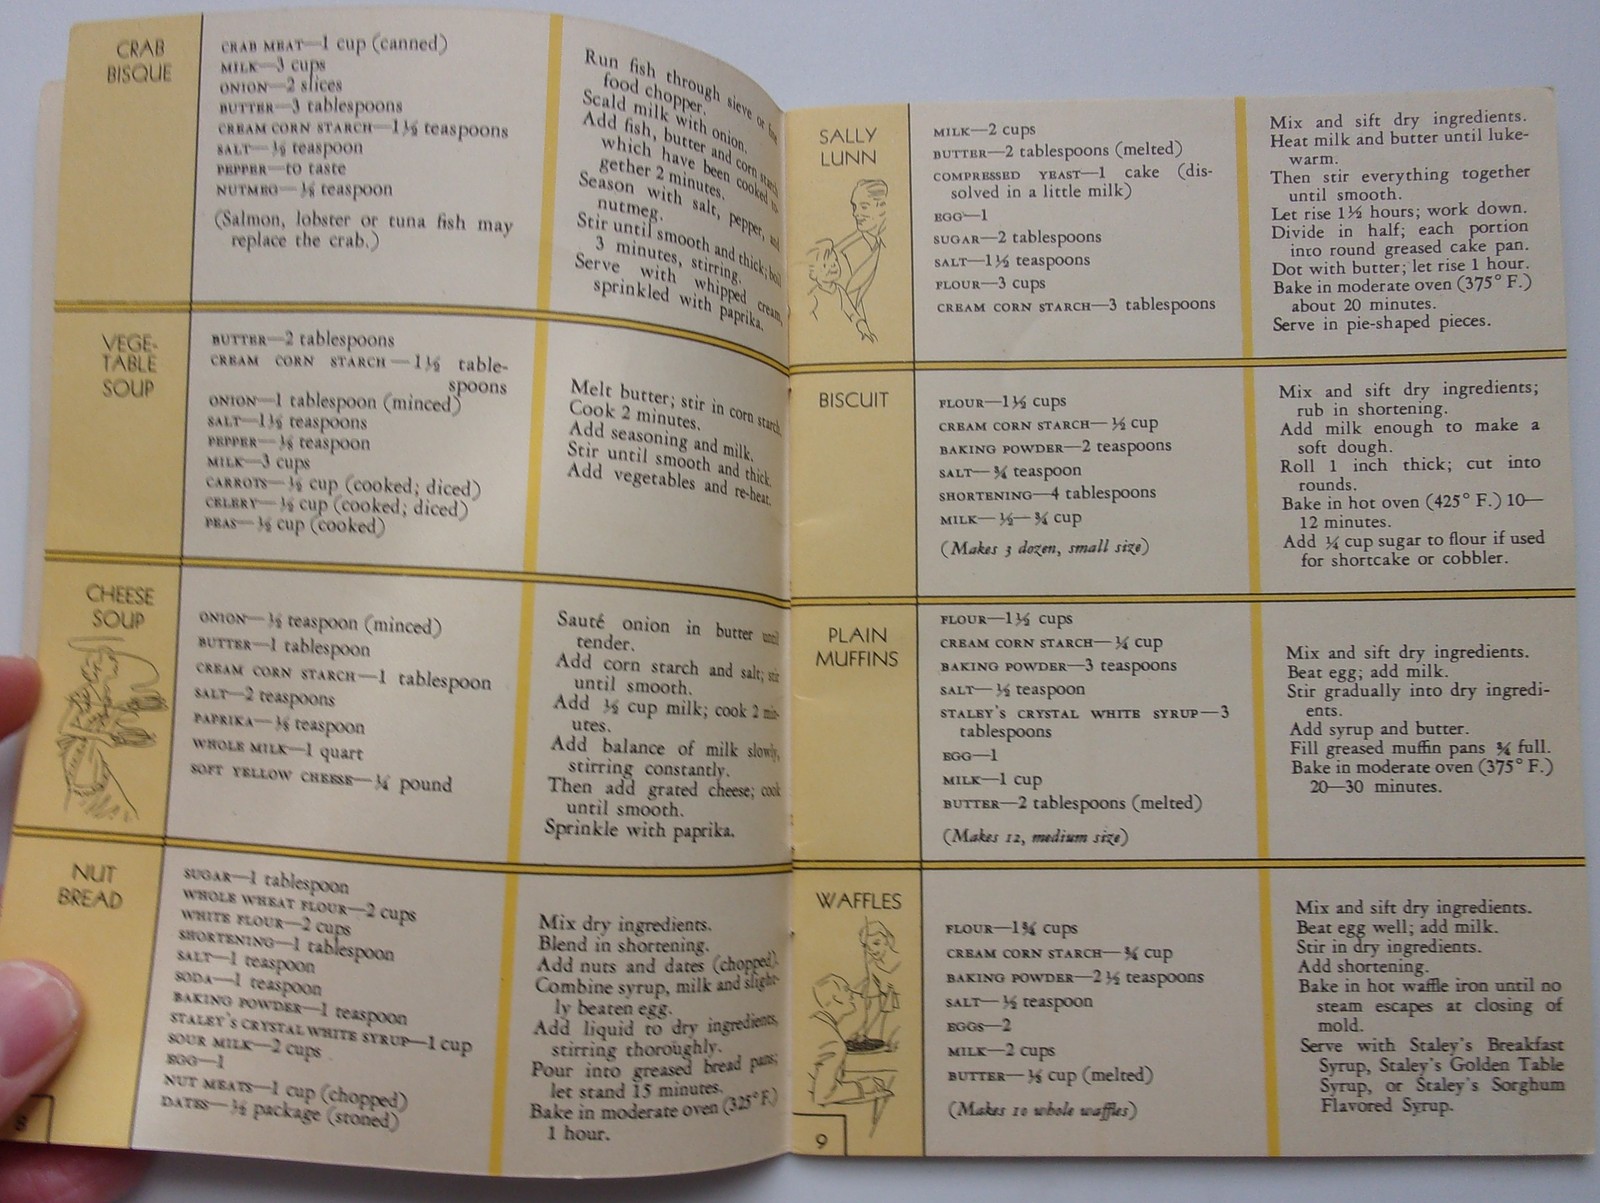 CRAB
BISQUE
CRAB MEAT—1 cup (canned)
MILK—3 cups
ONION—2 slices
BUTTER—3 tablespoons
CREAM CORN STARCH—1½ teaspoons
SALT—½ teaspoon
PEPPER—to taste
NUTMEG—⅛ teaspoon
(Salmon, lobster or tuna fish may
replace the crab.)
Run fish through sieve or fine
food chopper.
Scald milk with onion.
Add fish, butter and corn starch
which have been cooked to-
gether 2 minutes.
Season with salt, pepper, and
nutmeg.
Stir until smooth and thick; boil
3 minutes, stirring.
Serve with whipped cream,
sprinkled with paprika.
VEGE-
TABLE
SOUP
BUTTER—2 tablespoons
CREAM CORN STARCH—1½ table-
spoons
ONION—1 tablespoon (minced)
SALT—1½ teaspoons
PEPPER—⅛ teaspoon
MILK—3 cups
CARROTS—½ cup (cooked; diced)
CELERY—½ cup (cooked; diced)
PEAS—½ cup (cooked)
Melt butter; stir in corn starch.
Cook 2 minutes.
Add seasoning and milk.
Stir until smooth and thick.
Add vegetables and re-heat.
CHEESE
SOUP
ONION—½ teaspoon (minced)
BUTTER—1 tablespoon
CREAM CORN STARCH—1 tablespoon
SALT—2 teaspoons
PAPRIKA—⅛ teaspoon
WHOLE MILK—1 quart
SOFT YELLOW CHEESE—¼ pound
Sauté onion in butter until
tender.
Add corn starch and salt; stir
until smooth.
Add ½ cup milk; cook 2 min-
utes.
Add balance of milk slowly,
stirring constantly.
Then add grated cheese; cook
until smooth.
Sprinkle with paprika.
NUT
BREAD
SUGAR—1 tablespoon
WHOLE WHEAT FLOUR—2 cups
WHITE FLOUR—2 cups
SHORTENING—1 tablespoon
SALT—1 teaspoon
SODA—1 teaspoon
BAKING POWDER—1 teaspoon
STALEY'S CRYSTAL WHITE SYRUP—1 cup
SOUR MILK—2 cups
EGG—1
NUT MEATS—1 cup (chopped)
DATES—½ package (stoned)
Mix dry ingredients.
Blend in shortening.
Add nuts and dates (chopped).
Combine syrup, milk and slight-
ly beaten egg.
Add liquid to dry ingredients,
stirring thoroughly.
Pour into greased bread pans;
let stand 15 minutes.
Bake in moderate oven (325° F.)
1 hour.
8
SALLY
LUNN
MILK—2 cups
BUTTER—2 tablespoons (melted)
COMPRESSED YEAST—1 cake (dis-
solved in a little milk)
EGG—1
SUGAR—2 tablespoons
SALT—1½ teaspoons
FLOUR—3 cups
CREAM CORN STARCH—3 tablespoons
Mix and sift dry ingredients.
Heat milk and butter until luke-
warm.
Then stir everything together
until smooth.
Let rise 1½ hours; work down.
Divide in half; each portion
into round greased cake pan.
Dot with butter; let rise 1 hour.
Bake in moderate oven (375° F.)
about 20 minutes.
Serve in pie-shaped pieces.
BISCUIT
FLOUR—1½ cups
CREAM CORN STARCH—½ cup
BAKING POWDER—2 teaspoons
SALT—¾ teaspoon
SHORTENING—4 tablespoons
MILK—½—¾ cup
(Makes 3 dozen, small size)
Mix and sift dry ingredients;
rub in shortening.
Add milk enough to make a
soft dough.
Roll 1 inch thick; cut into
rounds.
Bake in hot oven (425° F.) 10—
12 minutes.
Add ¼ cup sugar to flour if used
for shortcake or cobbler.
PLAIN
MUFFINS
FLOUR—1½ cups
CREAM CORN STARCH—¼ cup
BAKING POWDER—3 teaspoons
SALT—½ teaspoon
STALEY'S CRYSTAL WHITE SYRUP—3
tablespoons
EGG—1
MILK—1 cup
BUTTER—2 tablespoons (melted)
(Makes 12, medium size)
Mix and sift dry ingredients.
Beat egg; add milk.
Stir gradually into dry ingredi-
ents.
Add syrup and butter.
Fill greased muffin pans ¾ full.
Bake in moderate oven (375° F.)
20—30 minutes.
WAFFLES
FLOUR—1¾ cups
CREAM CORN STARCH—¾ cup
BAKING POWDER—2½ teaspoons
SALT—½ teaspoon
EGGS—2
MILK—2 cups
BUTTER—½ cup (melted)
(Makes 10 whole waffles)
Mix and sift dry ingredients.
Beat egg well; add milk.
Stir in dry ingredients.
Add shortening.
Bake in hot waffle iron until no
steam escapes at closing of
mold.
Serve with Staley's Breakfast
Syrup, Staley's Golden Table
Syrup, or Staley's Sorghum
Flavored Syrup.
9